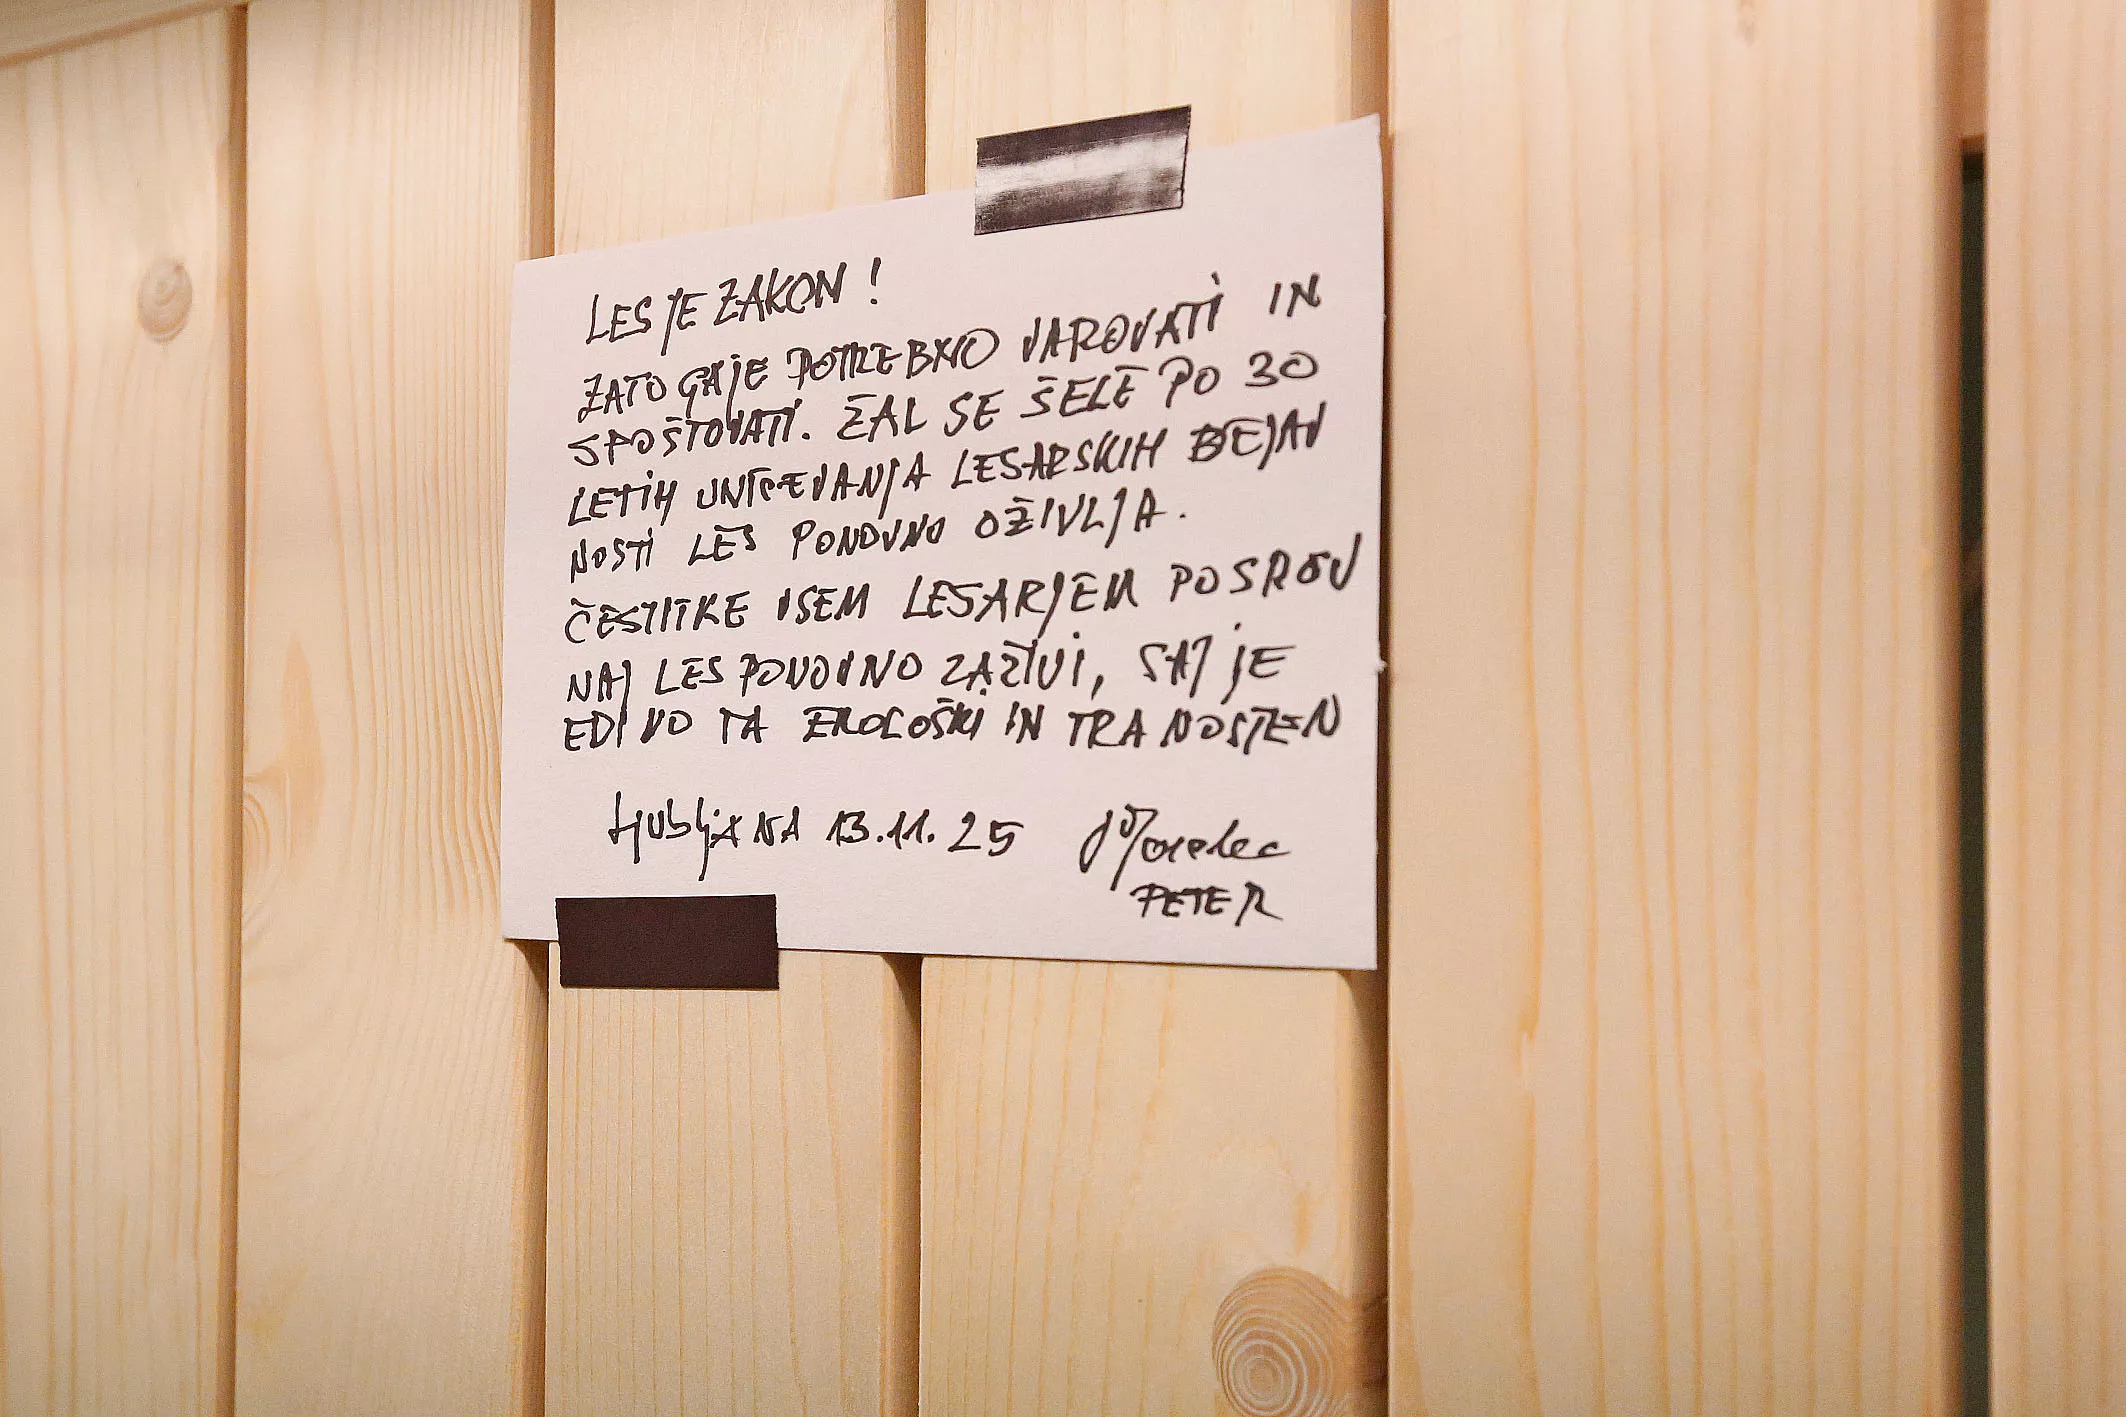 LES JE ZAKON!
ZATO GA JE POTREBNO VAROVATI IN
SPOŠTOVATI. ŽAL SE ŠELE PO 30
LETIH UNIČEVANJA LESARSKIH DEJAV
NOSTI LES PONOVNO OŽIVLJA.
ČESTITKE VSEM LESARJEM PO SLOV
NAJ LES PONOVNO ZAŽIVI, SAJ JE
EDINO TA EKOLOŠKI IN TRAJNOSTEN
LJUBLJANA 13.11.25
PETER